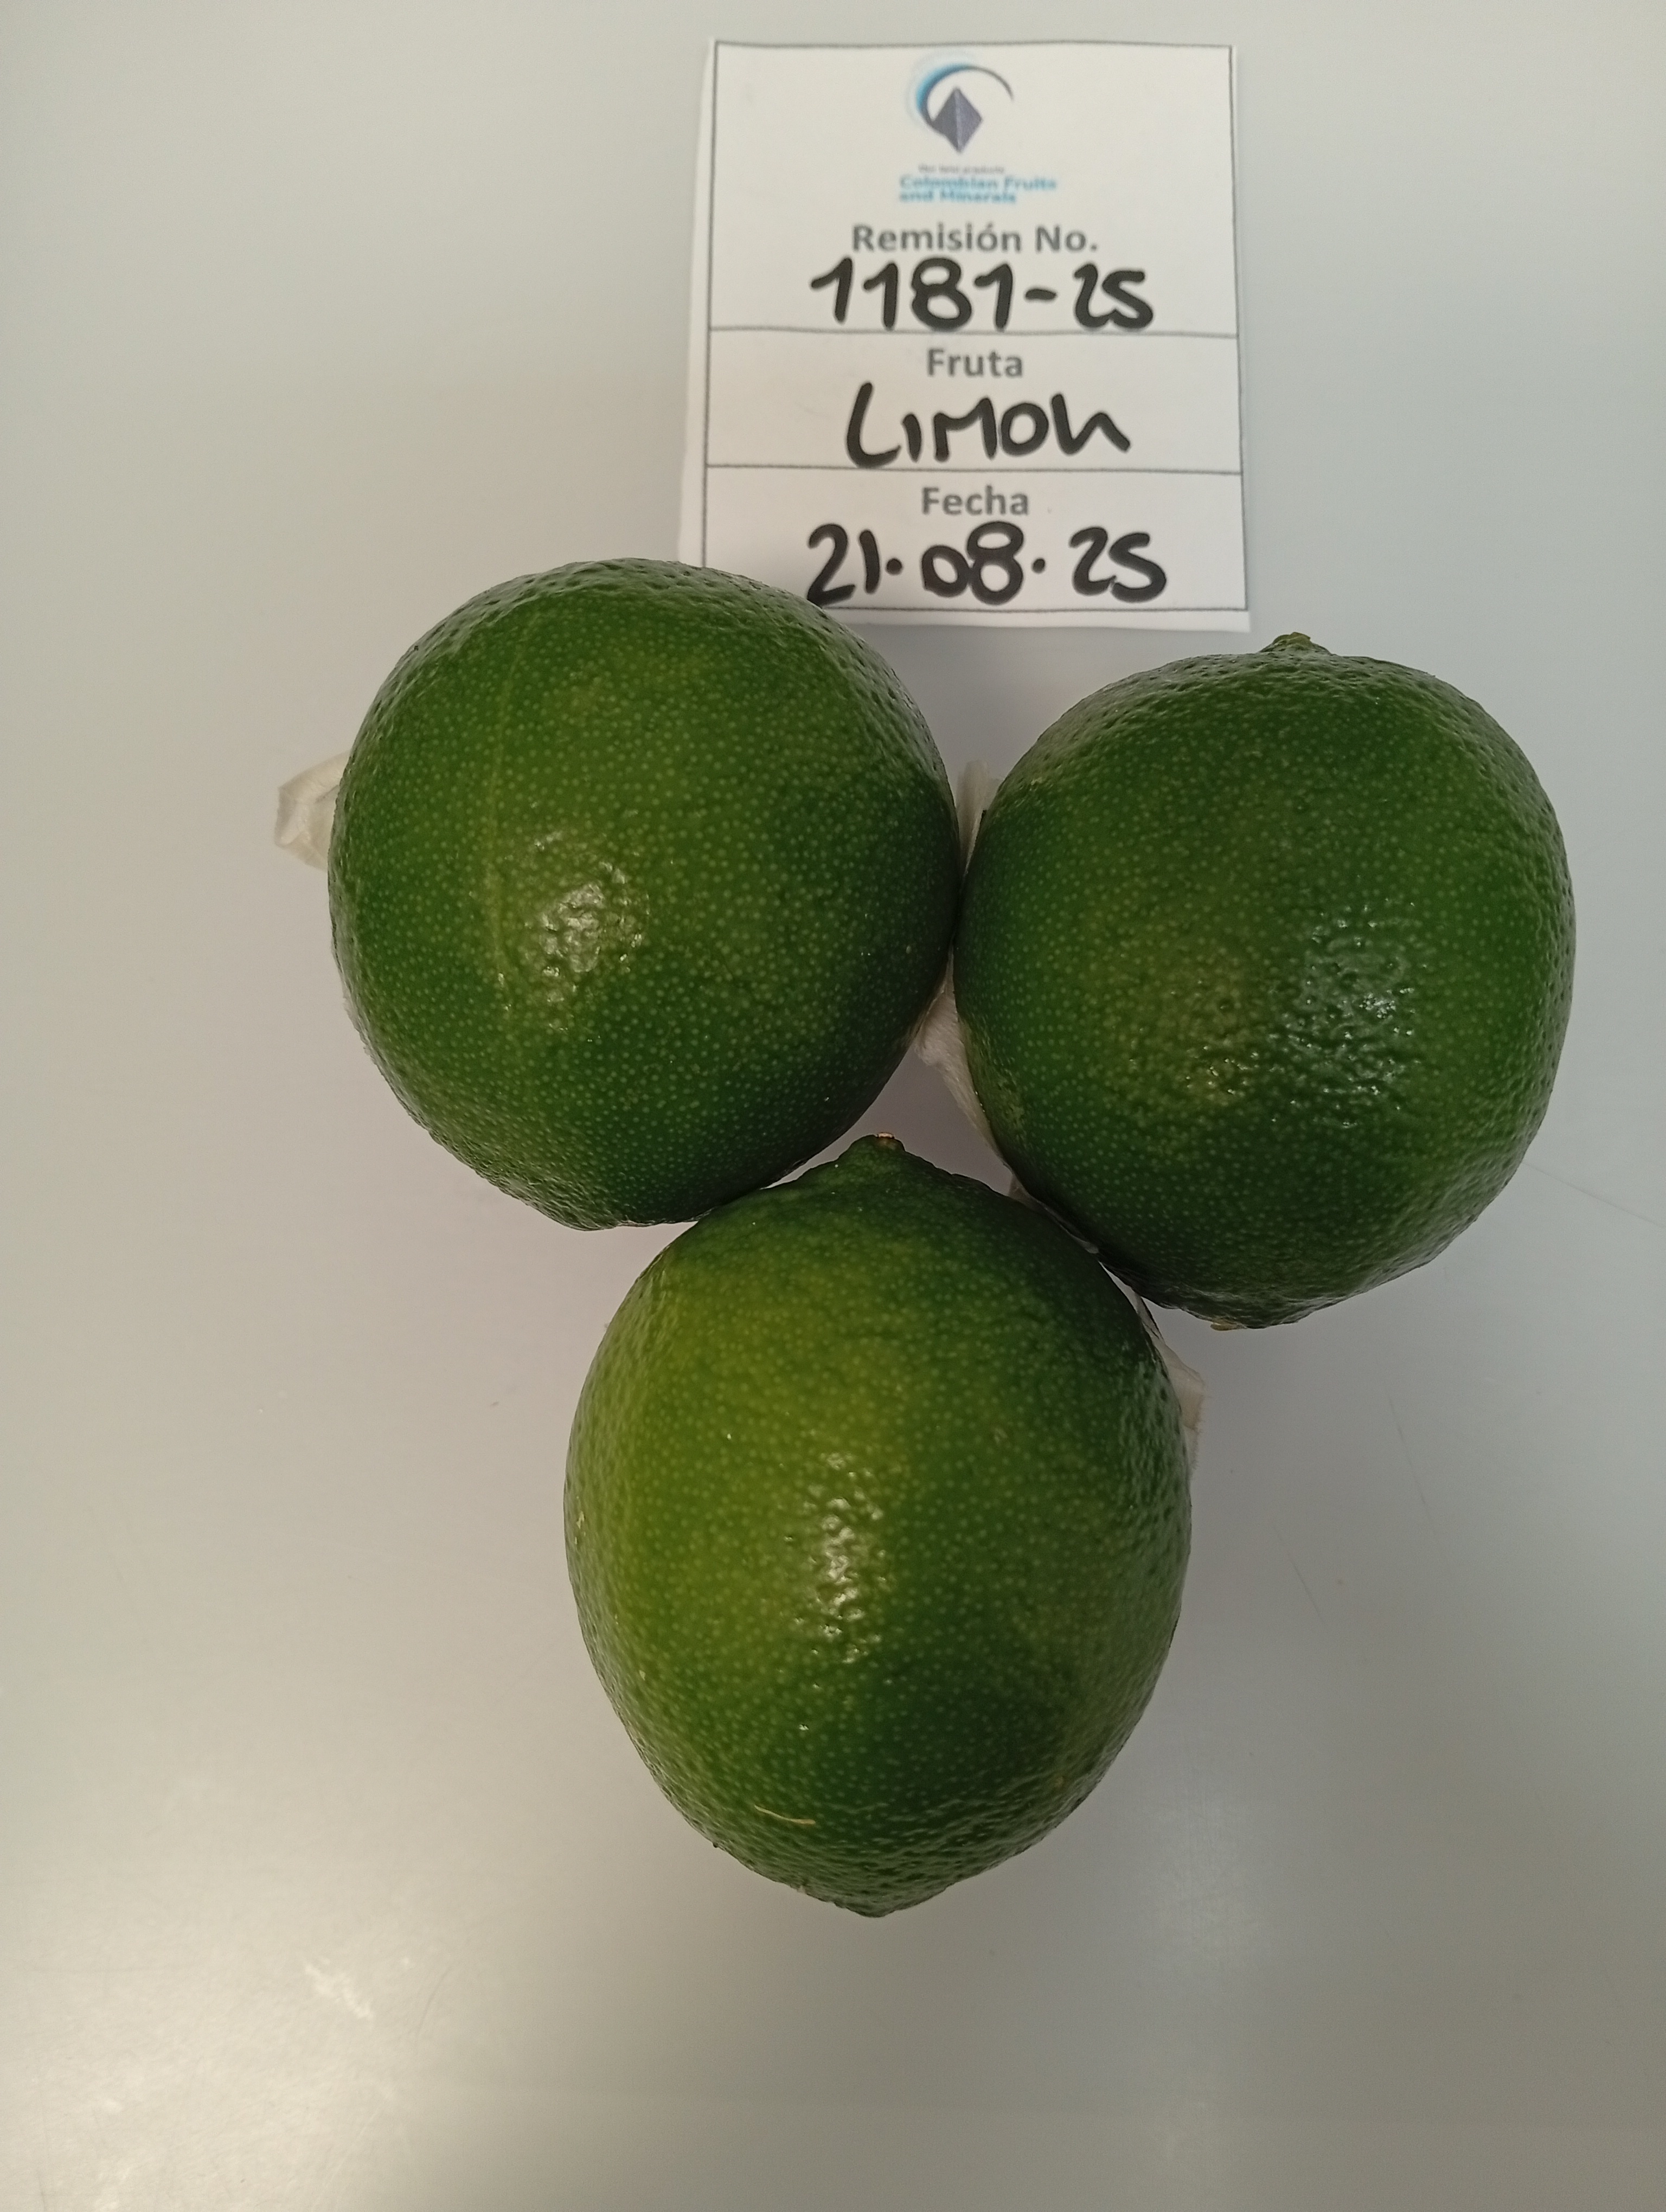 Colombian Fruits
and Minerals
Remisión No.
1181-25
Fruta
LIMON
Fecha
21.08.25